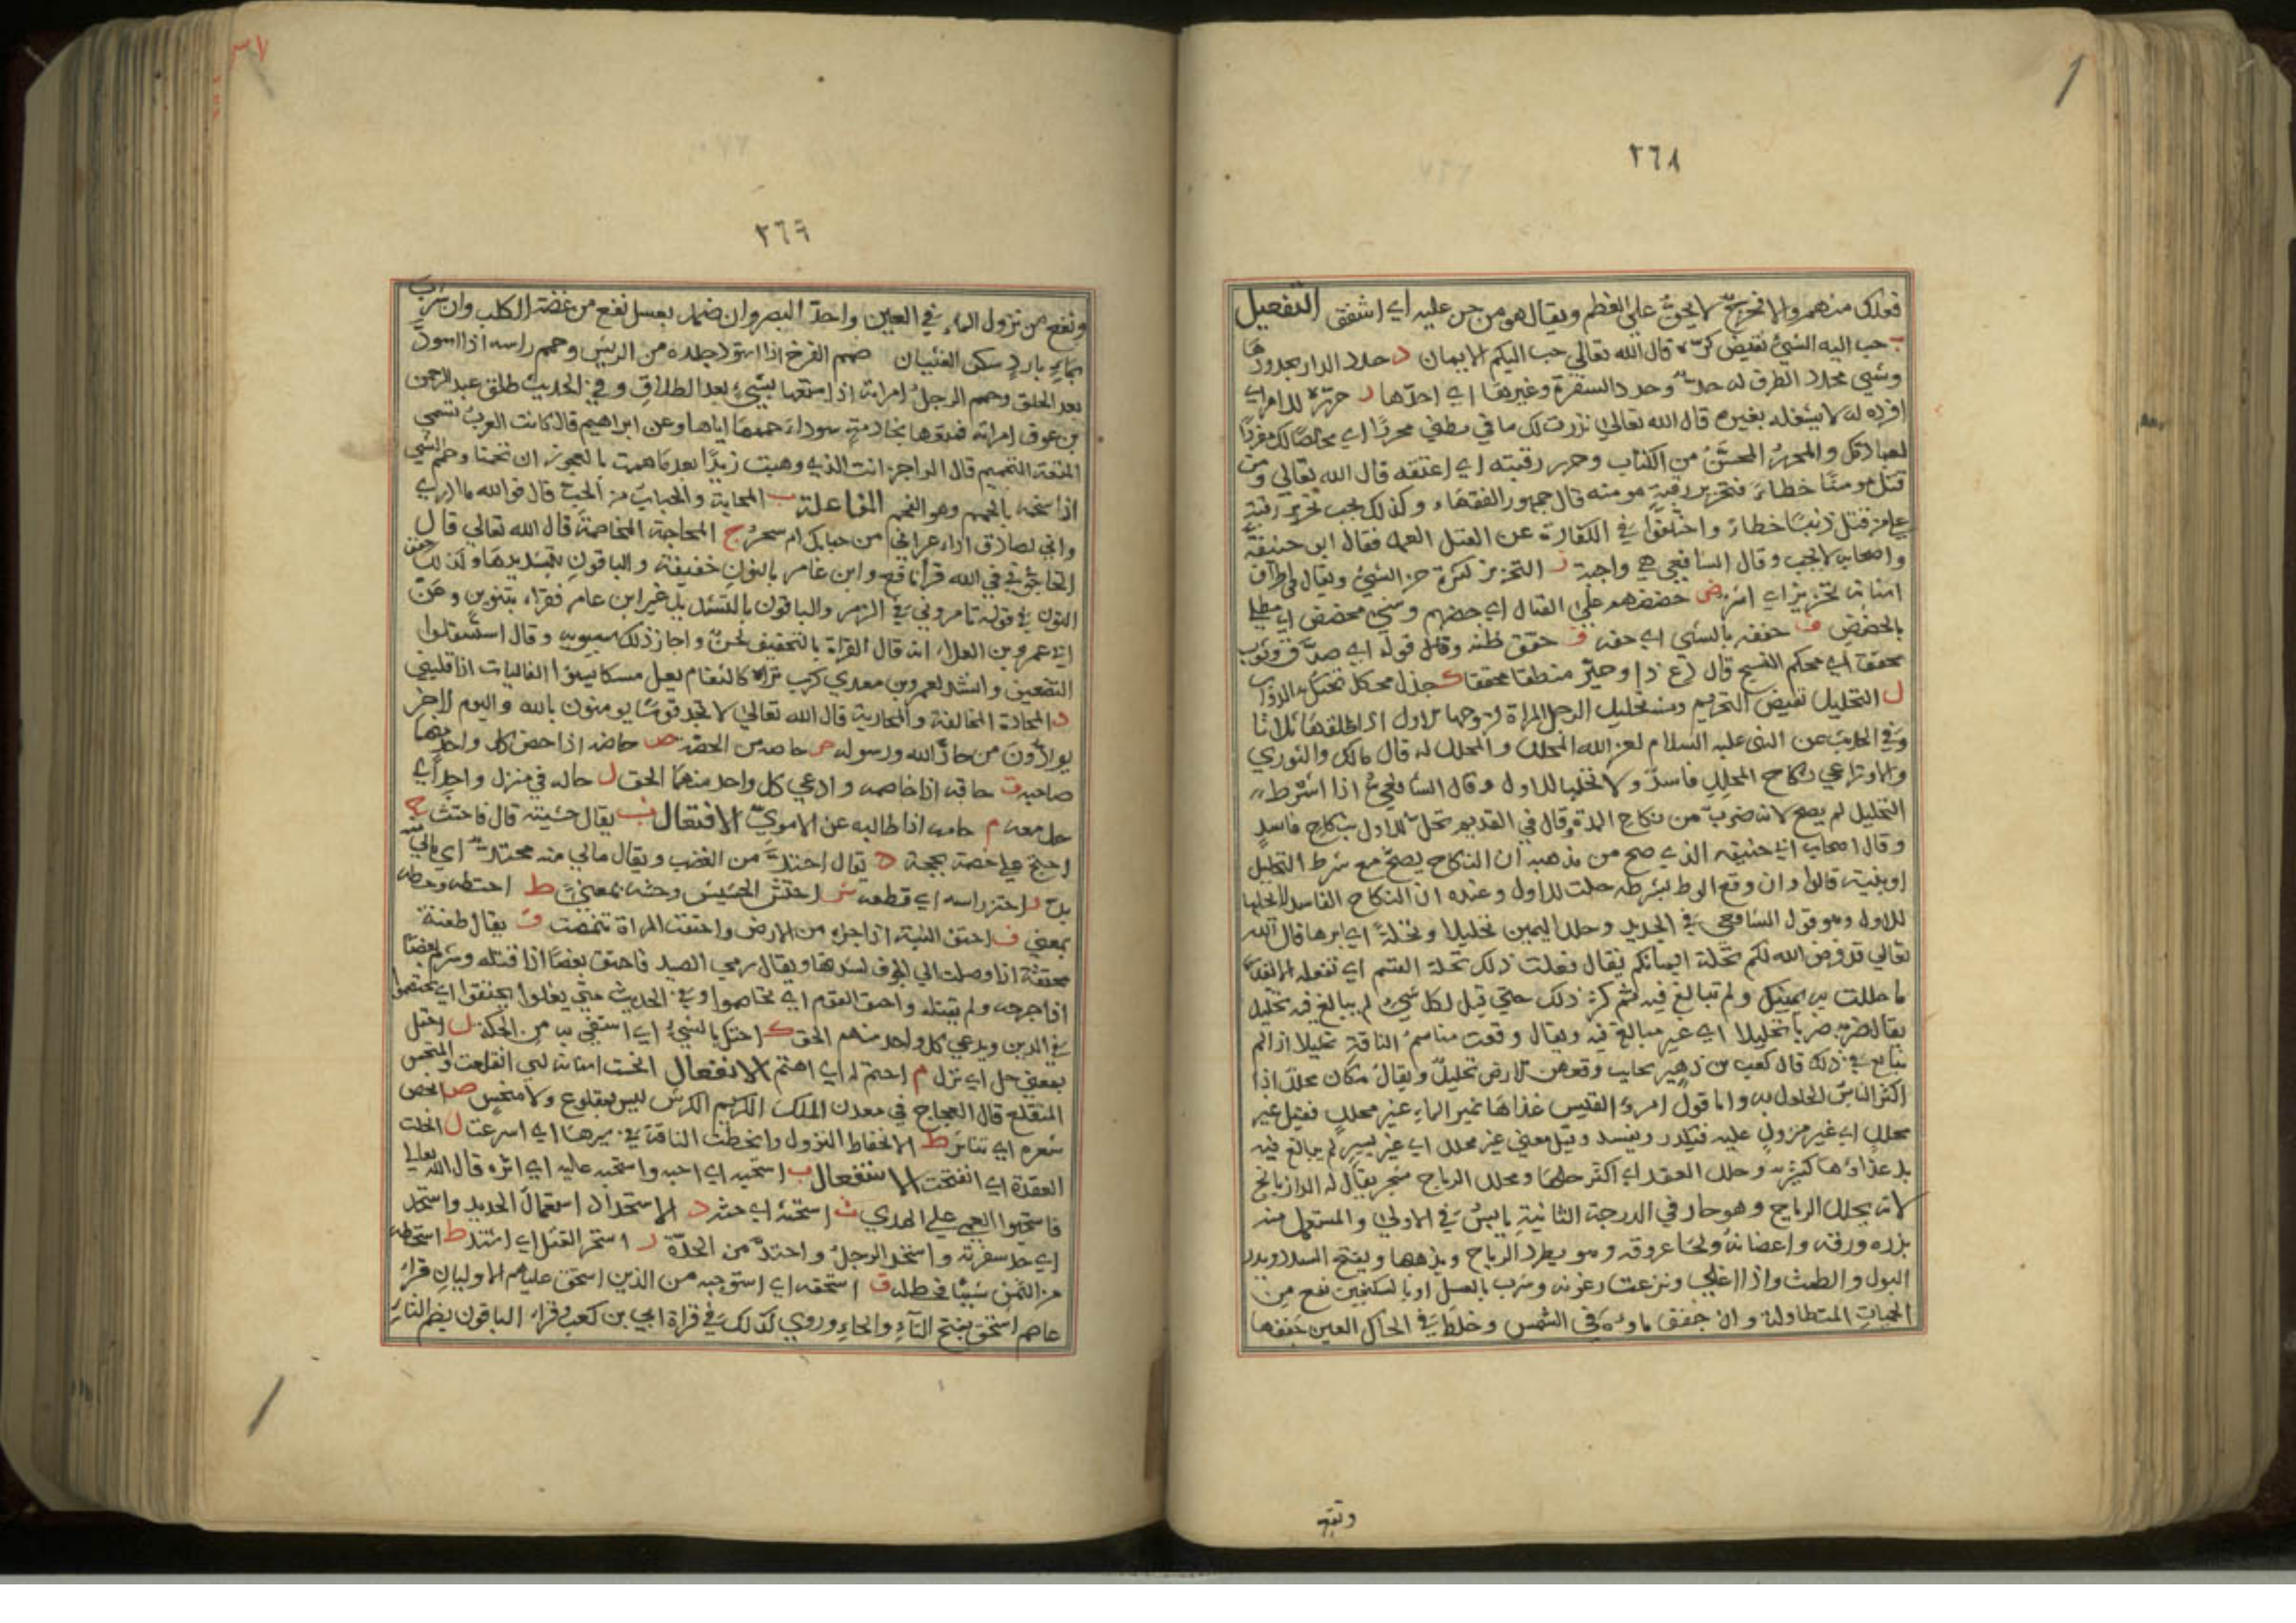 ٢٦٨
فولك منهم والا فخرج لا يحن على العظم ويقال هو من حن عليه اي اشفق التفعيل
ب حبب اليه الشيء نقيض كرهه قال الله تعالى حبب اليكم الايمان د حدد الدار بحدودها
وشيء محدد الطرف له حد وحدد السفرة وغيرها اي احدها ر حرره للامر اي
افرده له لا يشغله بغيره قال الله تعالى نذرت لك ما في بطني محررا اي مخلصا لك مفردا
لعبادتك والمحرر المحسن من الكتاب وحرر رقبته اي اعتقه قال الله تعالى ومن
قتل مومنا خطاء فتحرير رقبة مومنه قال جمهور الفقهاء وكذلك يجب تحرير رقبة
على من قتل ذميا خطاء واختلفوا في الكفارة عن القتل العمد فقال ابو حنيفة
واصحابه لا يجب وقال الشافعي هي واجبة ز التحزيز كثرة حز الشيء ويقال في اطراف
اسنانه تحزيز اي اشر ض حضضهم على القتال اي حضهم وشيء محضض اي مطلي
بالحضض ف حففه بالشيء اي حفه ق حقق ظنه وقال قوله اي صدق وثوب
محقق اي محكم النسيج قال ك جذل محكك تحتك به الدواب
ل التحليل نقيض التحريم ومنه تحليل الرجل المراة لزوجها الاول اذا طلقها ثلاثا
وفي الحديث عن النبي عليه السلام لعن الله المحلل والمحلل له قال مالك والثوري
والاوزاعي نكاح المحلل فاسد ولا تحل للاول وقال الشافعي اذا اشترط
التحليل لم يصح لانه ضرب من نكاح المدة وقال في القديم تحل للاول بنكاح فاسد
وقال اصحاب ابي حنيفه الذي صح من مذهبه ان النكاح يصح مع شرط التحليل
او بنيته قالوا وان وقع الوط بشرطه حلت للاول وعنده ان النكاح الفاسد لا يحلها
للاول وهو قول الشافعي في الجديد وحلل اليمين تحليلا وتحلة اي ابرها قال الله
تعالى قد فرض الله لكم تحلة ايمانكم يقال فعلت ذلك تحلة القسم اي تفعله الا بقدر
ما حللت به يمينك ولم تبالغ فيه ثم كثر ذلك حتى قيل لكل شيء لم يبالغ فيه تحليل
يقال ضربه ضربا تحليلا اي غير مبالغ فيه ويقال وقعت مناسم الناقة تحليلا اذا لم
تبالغ في ذلك قال كعب بن زهير وقعهن الارض تحليل ويقال مكان محلل اذا
اكثر الناس الحلول به واما قول امرؤ القيس غذاها نمير الماء غير محلل فقيل غير
محلل اي غير منزول عليه فيكدر ويفسد وقيل معنى غير محلل اي غير يسير لم يبالغ فيه
بل غذاؤها كثير به وحلل العقد اي اكثر حلها ومحلل الرياح شجر يقال له الرازيانج
لانه يحلل الرياح وهو حار في الدرجة الثانية يابس في الاولى والمستعمل منه
بزره ورقه واعضانه ولحا عروقه وهو يطرد الرياح ويذهبها ويفتح السدد ويدر
البول والطمث واذا اغلي ونزعت رغوته وشرب بالعسل او بالسكنجبين نفع من
الحميات المتطاولة وان جفف ماوه في الشمس وخلط في اكحال العين جففها
ونفع
٢٦٩
ونفع من نزول الماء في العين واحد البصر وان ضمد بعسل نفع من عضة الكلب وان شرب
بماء بارد سكن الغثيان حمم الفرخ اذا اسود جلده من الريش وحمم راسه اذا اسود
بعد الحلق وحمم الرجل امراته اذا متعها بشيء بعد الطلاق وفي الحديث طلق عبد الرحمن
بن عوف امراته فمتعها بخادمة سوداء حممها اياها وعن ابراهيم قال كانت العرب تسمي
المتعة التحميم قال الراجز انت الذي وهبت زيدا بعد ما هممت بالعجوز ان تحمما وحمم الشيء
اذا سخنه بالحميم وهو الفحم المفاعلة ب المحابة والحباب من الحب قال فوالله ما ادري
واني لصادق اداء عراني من حبابك ام سحر ج المحاجة المخاصمة قال الله تعالى قال
اتحاجوني في الله قرا نافع وابن عامر بالنون خفيفة والباقون بتشديدها وكذلك خفف
النون في قوله تامروني في الزمر والباقون بالتشديد غير ابن عامر فقراء بنونين وعن
ابي عمرو بن العلاء انه قال القراة بالتخفيف لحن واجاز ذلك سيبويه وقال استثقلوا
التضعيف وانشد لعمرو بن معدي كرب تراه كالثغام يعل مسكا يسوء الفاليات اذا فليني
د المحادة المخالفة والمحاربة قال الله تعالى لا تجد قوما يومنون بالله واليوم الاخر
يوادون من حاد الله ورسوله ص حاصه من الحصه ض حاضه اذا حض كل واحد منهما
صاحبه ق حاقه اذا خاصمه وادعى كل واحد منهما الحق ل حاله في منزل واحد اي
حل معه م حامه اذا طالبه عن الاموي الافتعال ث يقال حثيته قال فاحتث ج
احتج على خصمه بحجة د يقال احتد من الغضب ويقال مالي منه محتد اي مالي منه
بد ز احتز راسه اي قطعه ش احتش الحشيش وحشه بمعنى ط احتطه وحطه
بمعنى ف احتف النبت اذا جزه من الارض واحتفت المراة تنمصت ق يقال طعنة
محتقة اذا وصلت الى الجوف لشدتها ويقال رمى الصيد فاحتق بعضا اذا قتله وشرم بعضا
اذا جرحه ولم يقتله واحتق القوم اي تخاصموا وفي الحديث متى يغلوا يحتقوا اي يختصموا
في الدين ويدعي كل واحد منهم الحق ك احتك بالشيء اي استشفي به من الحكة ل احتل
بمعنى حل اي نزل م احتم له اي اهتم الانفعال انحتت اسنانه اي انقلعت والمنحس
المنقلع قال العجاج في معدن الملك الكريم الكرس ليس بمقلوع ولا منحس ص انحص
شعره اي تناثر ط الانحطاط النزول وانحطت الناقة في سيرها اي اسرعت ل انحلت
العقدة اي انفتحت الاستفعال ب استحبه اي احبه واستحبه عليه اي اثره قال الله تعالى
فاستحبوا العمى على الهدى ث استحثه اي حثه د الاستحداد استعمال الحديد واستحد
اي حد سفرته واستحد الرجل واحتد من الحدة ر استحر القتل اي اشتد ط استحطه
من الثمن شيئا فحط له ق استحقه اي استوجبه من الذين استحق عليهم الاوليان قراء
عاصم استحق بفتح التاء والحاء وروي كذلك في قراة ابي بن كعب وقراء الباقون بضم التاء